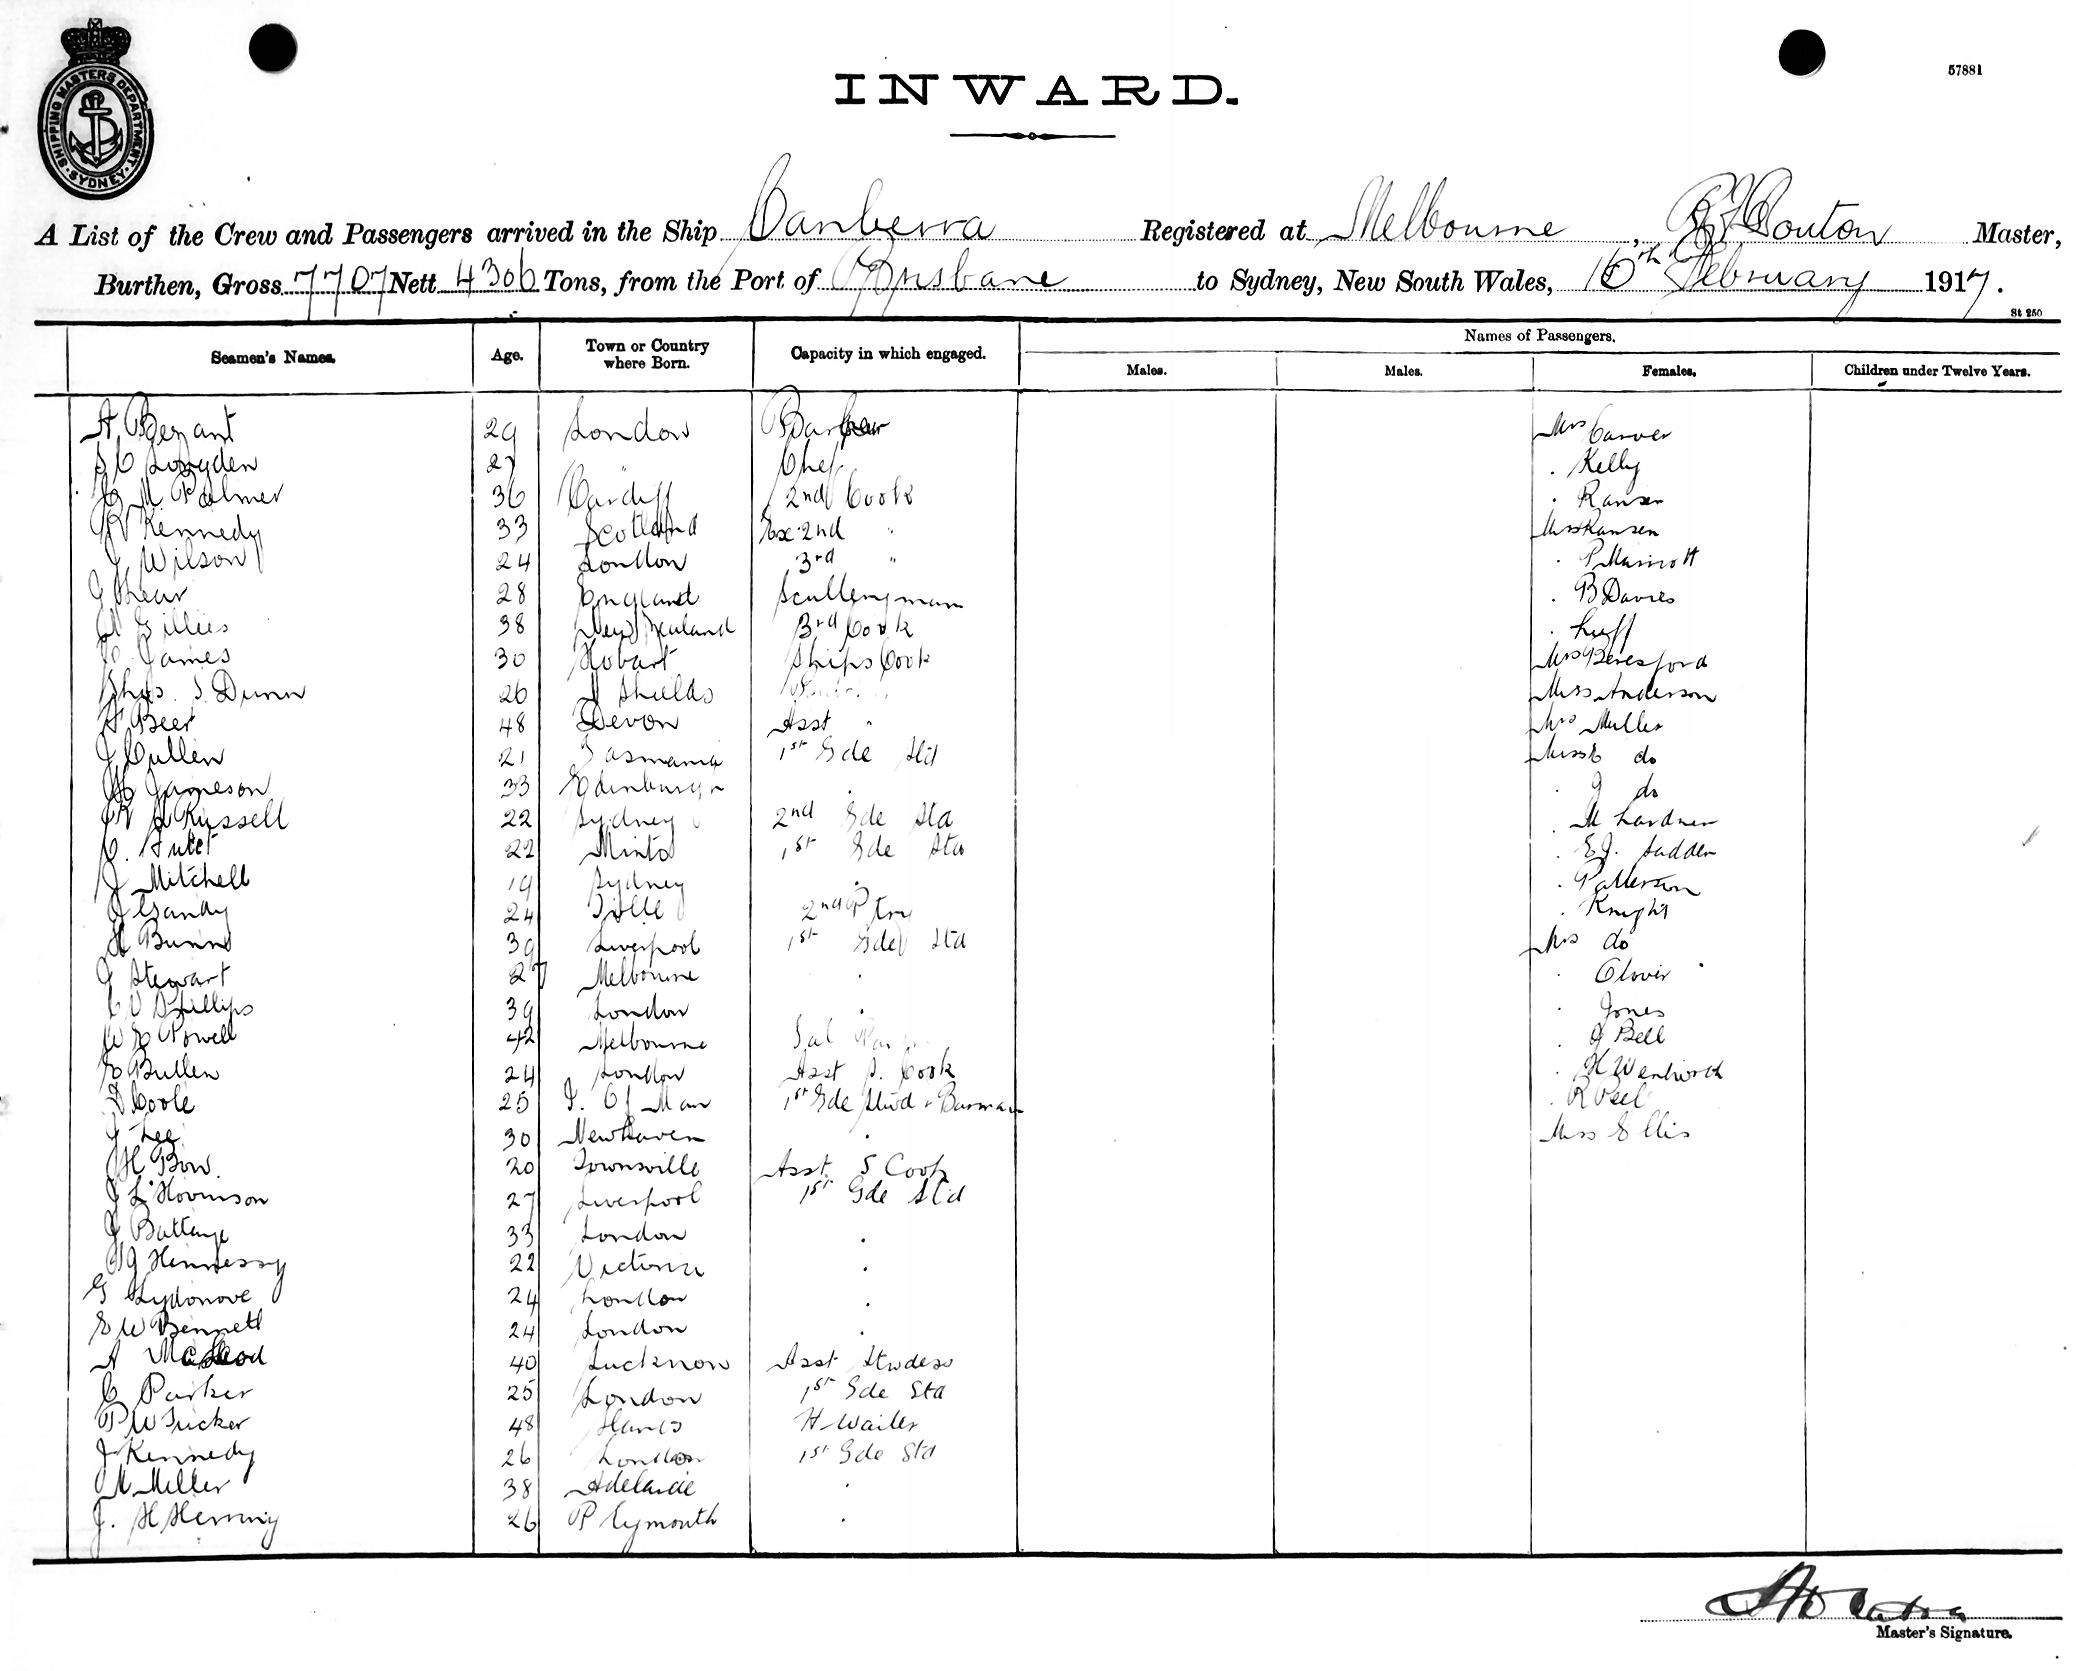 SHIPPING MASTERS DEPARTMENT
SYDNEY
57881
INWARD.
A List of the Crew and Passengers arrived in the Ship Canberra Registered at Melbourne, Master,
Burthen, Gross 7707 Nett 4306 Tons, from the Port of Brisbane to Sydney, New South Wales, 16th February 1917.
St 250
Seamen's Names. Age. Town or Country where Born. Capacity in which engaged. Names of Passengers.
Males. Males. Females. Children under Twelve Years.
A Bezant 29 London Barber Mrs Carver
Longden 27 " Chef . Kelly
M Palmer 36 Cardiff 2nd Cook . Ransen
R Kennedy 33 Scotland Ex 2nd " Miss Ransen
J Wilson 24 London 3rd " . P Marriott
J Shear 28 England Sculleryman . B Davies
Gillies 38 New Zealand 3rd Cook . Luff
James 30 Hobart Ships Cook Mrs Beresford
Chas. S Dunn 26 N Shields Miss Anderson
A Beer 48 Devon Asst " Mrs Muller
J Cullen 21 Tasmania 1st Gde Std Miss E do
Jameson 33 Edinburgh . . J do
Russell 22 Sydney 2nd Gde Std . M Lardner
C. 22 Minto 1st Gde Std . E J. Sadden
J Mitchell 19 Sydney . . Patterson
J Gandy 24 2nd Ptry . Knight
H Bunn 39 Liverpool 1st Gde Std Mrs do
J Stewart 27 Melbourne . . Clovir
C V Phillips 39 London . . Jones
W E Powell 42 Melbourne Sal . J Bell
E Bullen 24 London Asst S. Cook . H Wentworth
D Coole 25 I. Of Man 1st Gde Stwd & Barman . R Peel
J Lee 30 Newhaven . Miss Ellis
H Bow. 20 Townsville Asst S Cook
J L Hovinson 27 Liverpool 1st Gde Std
J Battaye 33 London .
Hennessy 22 Victoria .
G Lydonove 24 London .
E W Bennett 24 London .
A McLeod 40 Lucknow Asst Stwdess
C Parker 25 London 1st Gde Std
P W Tucker 48 Hants H-Waiter
J Kennedy 26 London 1st Gde Std
M Miller 38 Adelaide .
J. H Herring 26 Plymouth .
Master's Signature.